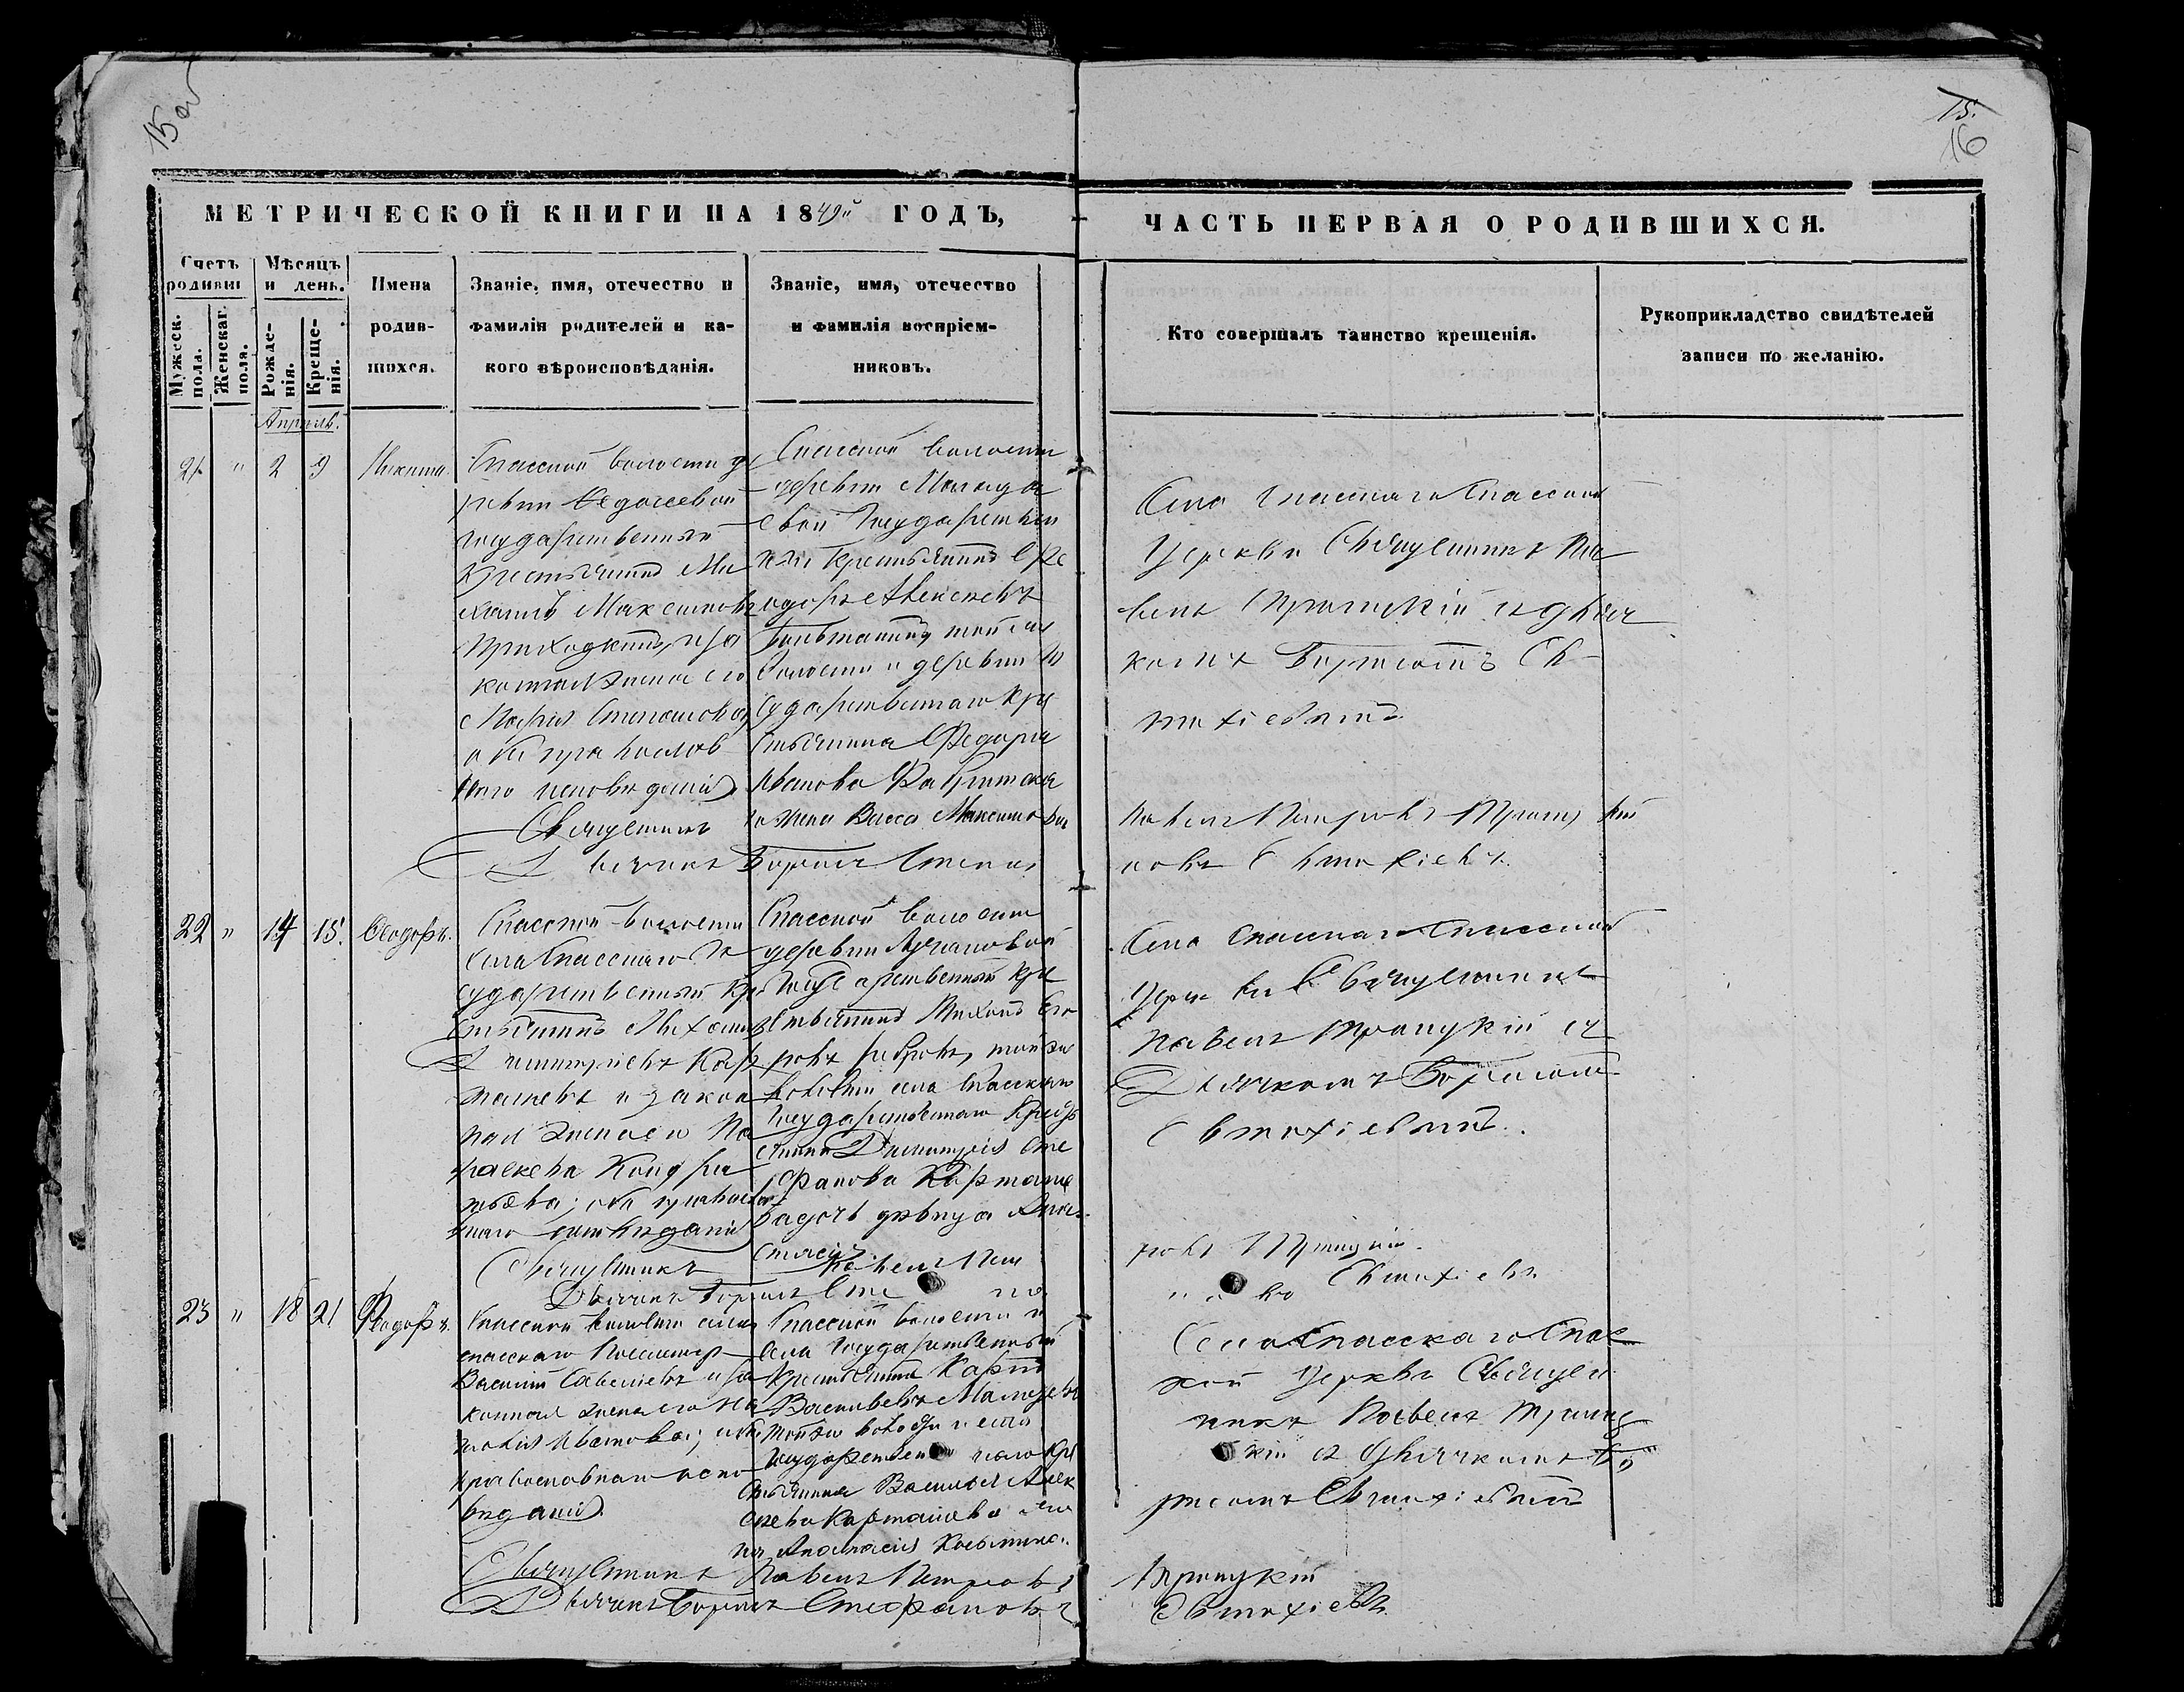 15 об
15.
16
МЕТРИЧЕСКОЙ КНИГИ НА 1849й ГОДЪ,
ЧАСТЬ ПЕРВАЯ О РОДИВШИХСЯ.
Счетъ родивш
Мужеск. пола.
Женскаг. пола.
Мѣсяцъ и день.
Рожде-
нія.
Креще-
нія.
Имена
родив-
шихся.
Званіе, имя, отечество и
фамилія родителей и ка-
кого вѣроисповѣданія.
Званіе, имя, отечество
и фамилія воспріем-
никовъ.
Кто совершалъ таинство крещенія.
Рукоприкладство свидѣтелей
записи по желанію.
Апрѣль.
21 " 2 9 Никита.
Спасской волости де
ревни Федосеевой
государственный
крестьянинъ Ми
хаилъ Максимовъ
и за
конная жена его
Марья Степанова,
оба православ
наго исповѣданія
Священникъ
Дьячекъ Борисъ Степа
Спасской волости
деревни
евой Государствен
крестьянинъ Фе
одоръ Алексѣевъ
той же
волости и деревни Го
сударственнаго кре
стьянина Федора
Иванова
жена Васса Максимова
Села Спасскаго Спасской
Церкви Священникъ Па
велъ Троицкій съ дьяч
комъ Борисомъ Ев
тихіевымъ
Павелъ Петровъ Троицкій
новъ Евтихіевъ.
22 " 14 15. Феодоръ.
Спасской волости
села Спасскаго Го
сударственный кре
стьянинъ Михаилъ
Димитріевъ Кар
ташевъ и закон
ная жена его Па
раскева Кондра
тьева; оба православ
наго исповѣданія
Священникъ Павелъ Пет
Дьячекъ Борисъ Сте
Спасской волости
деревни Лучановой
Государственный кре
стьянинъ Тихонъ Его
ровъ Ребровъ, той же
волости села Спасскаго
Государственнаго крестья
нина Димитрія Сте
фанова Карташе
ва дочь дѣвица Ана
стасія.
Села Спасскаго Спасской
Церкви Священникъ
Павелъ Троицкій съ
Дьячкомъ Борисомъ
Евтихіевымъ.
ровъ Троицкій.
Евтихіевъ
23 " 18 21 Феодоръ.
Спасской волости села
Спасскаго
Василій Савельевъ и за
конная жена его На
талія Иванова; оба
православнаго испо
вѣданія.
Священникъ Павелъ Петровъ
Дьячекъ Борисъ Стефановъ
Спасской волости и
села Государственный
крестьянинъ Карпъ
Васильевъ
той же волости и села
Государственнаго кре
стьянина Василья Алек
сѣева Карташева же
на Анастасія Космина.
Села Спасскаго Спас
кой Церкви Священ
никъ Павелъ Троиц
кій съ дьячкомъ Бо
рисомъ Евтихіевымъ
Троицкій
Евтихіевъ.